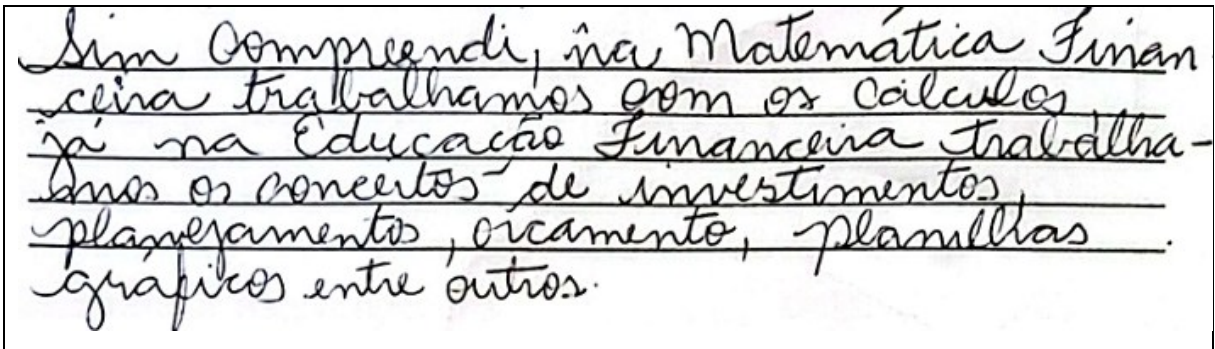 Sim compreendi, na Matemática Finan
ceira trabalhamos com os cálculos
já na Educação Financeira trabalha-
mos os conceitos de investimentos,
planejamentos, orçamento, planilhas
gráficos entre outros.